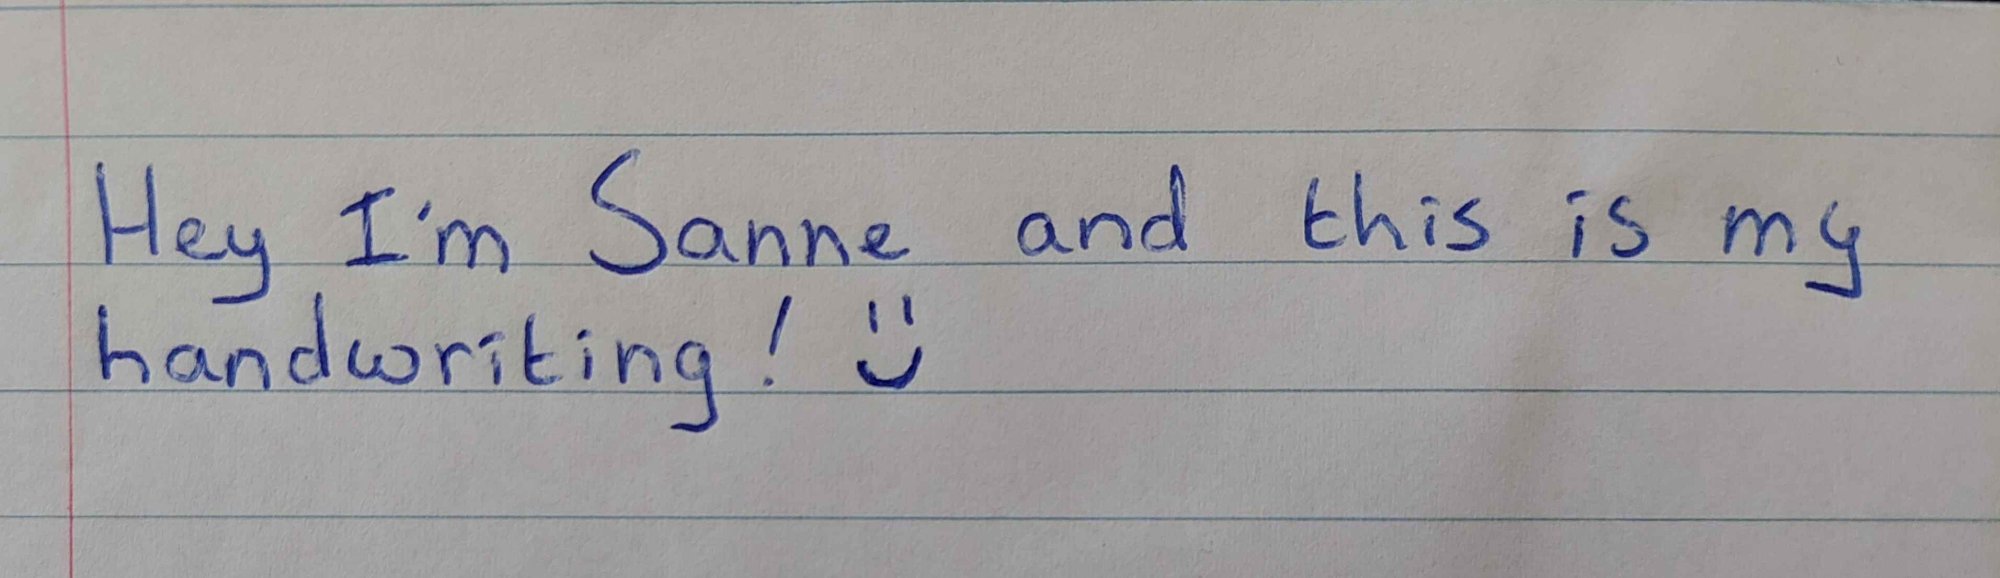 Hey I'm Sanne and this is my
handwriting! :)